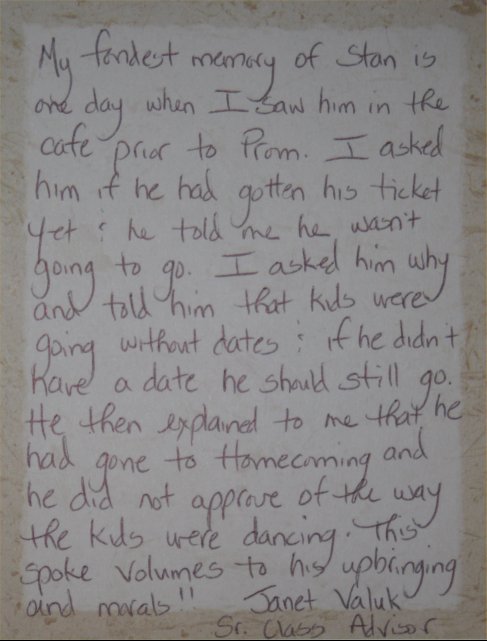 My fondest memory of Stan is
one day when I saw him in the
cafe prior to Prom. I asked
him if he had gotten his ticket
yet & he told me he wasn't
going to go. I asked him why
and told him that kids were
going without dates & if he didn't
have a date he should still go.
He then explained to me that he
had gone to Homecoming and
he did not approve of the way
the kids were dancing. This
spoke volumes to his upbringing
and morals!!  Janet Valuk
Sr. Class Advisor